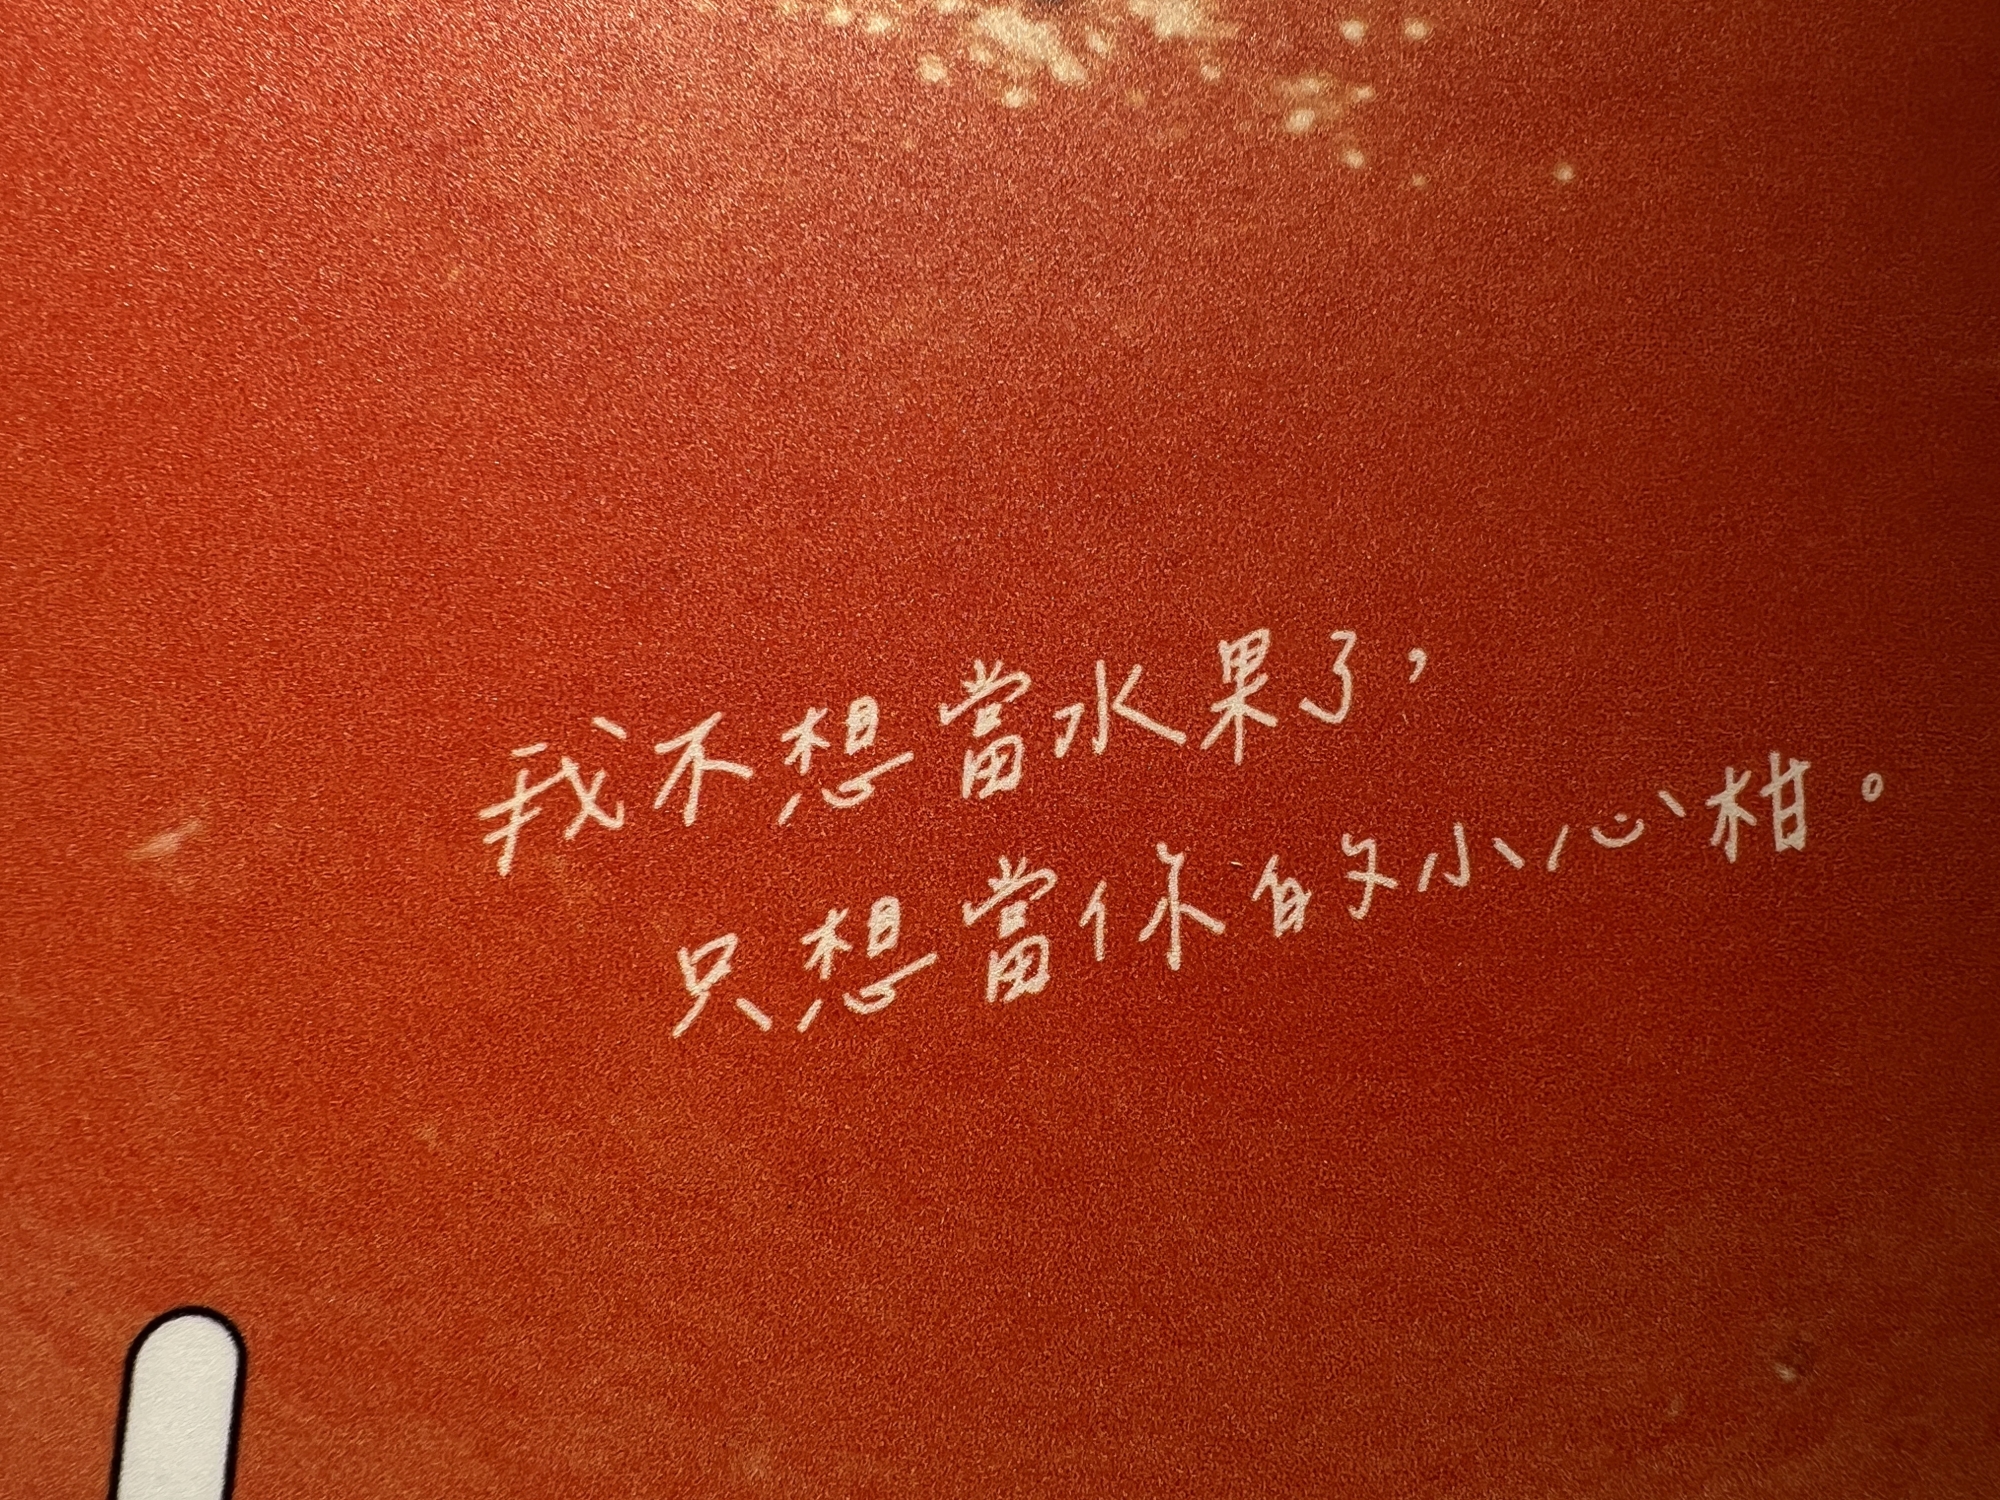 我不想當水果了，
只想當你的小心柑。